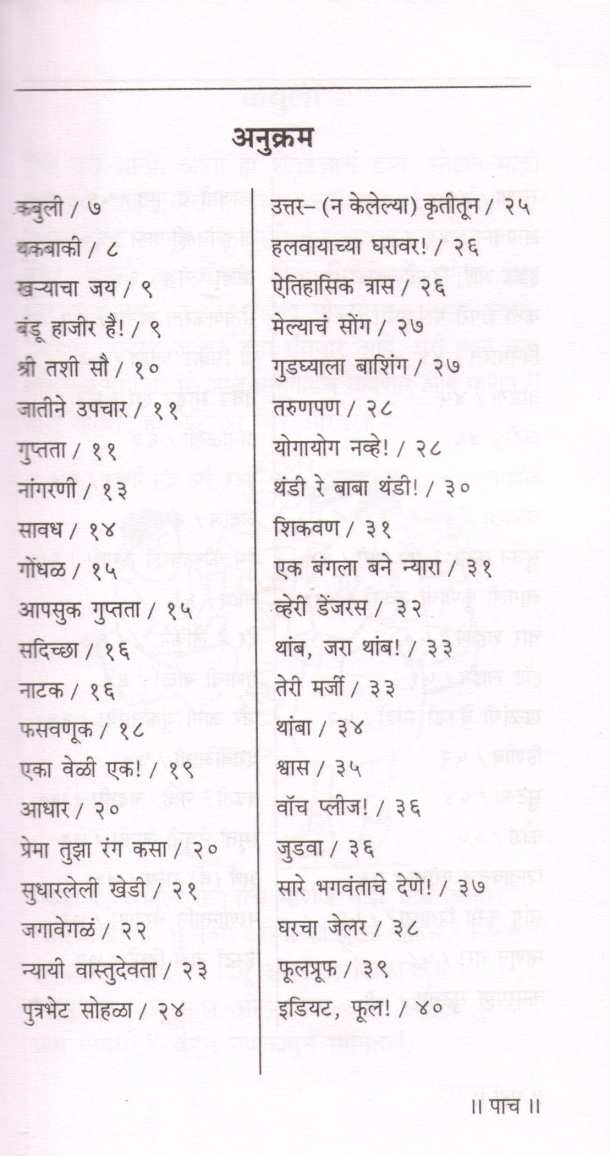 अनुक्रम
कबुली / ७
थकबाकी / ८
खऱ्याचा जय / ९
बंडू हाजीर है! / ९
श्री तशी सौ / १०
जातीने उपचार / ११
गुप्तता / ११
नांगरणी / १३
सावध / १४
गोंधळ / १५
आपसुक गुप्तता / १५
सदिच्छा / १६
नाटक / १६
फसवणूक / १८
एका वेळी एक! / १९
आधार / २०
प्रेमा तुझा रंग कसा / २०
सुधारलेली खेडी / २१
जगावेगळं / २२
न्यायी वास्तुदेवता / २३
पुत्रभेट सोहळा / २४
उत्तर– (न केलेल्या) कृतीतून / २५
हलवायाच्या घरावर! / २६
ऐतिहासिक त्रास / २६
मेल्याचं सोंग / २७
गुडघ्याला बाशिंग / २७
तरुणपण / २८
योगायोग नव्हे! / २८
थंडी रे बाबा थंडी! / ३०
शिकवण / ३१
एक बंगला बने न्यारा / ३१
व्हेरी डेंजरस / ३२
थांब, जरा थांब! / ३३
तेरी मर्जी / ३३
थांबा / ३४
श्वास / ३५
वॉच प्लीज! / ३६
जुडवा / ३६
सारे भगवंताचे देणे! / ३७
घरचा जेलर / ३८
फूलप्रूफ / ३९
इडियट, फूल! / ४०
॥ पाच ॥